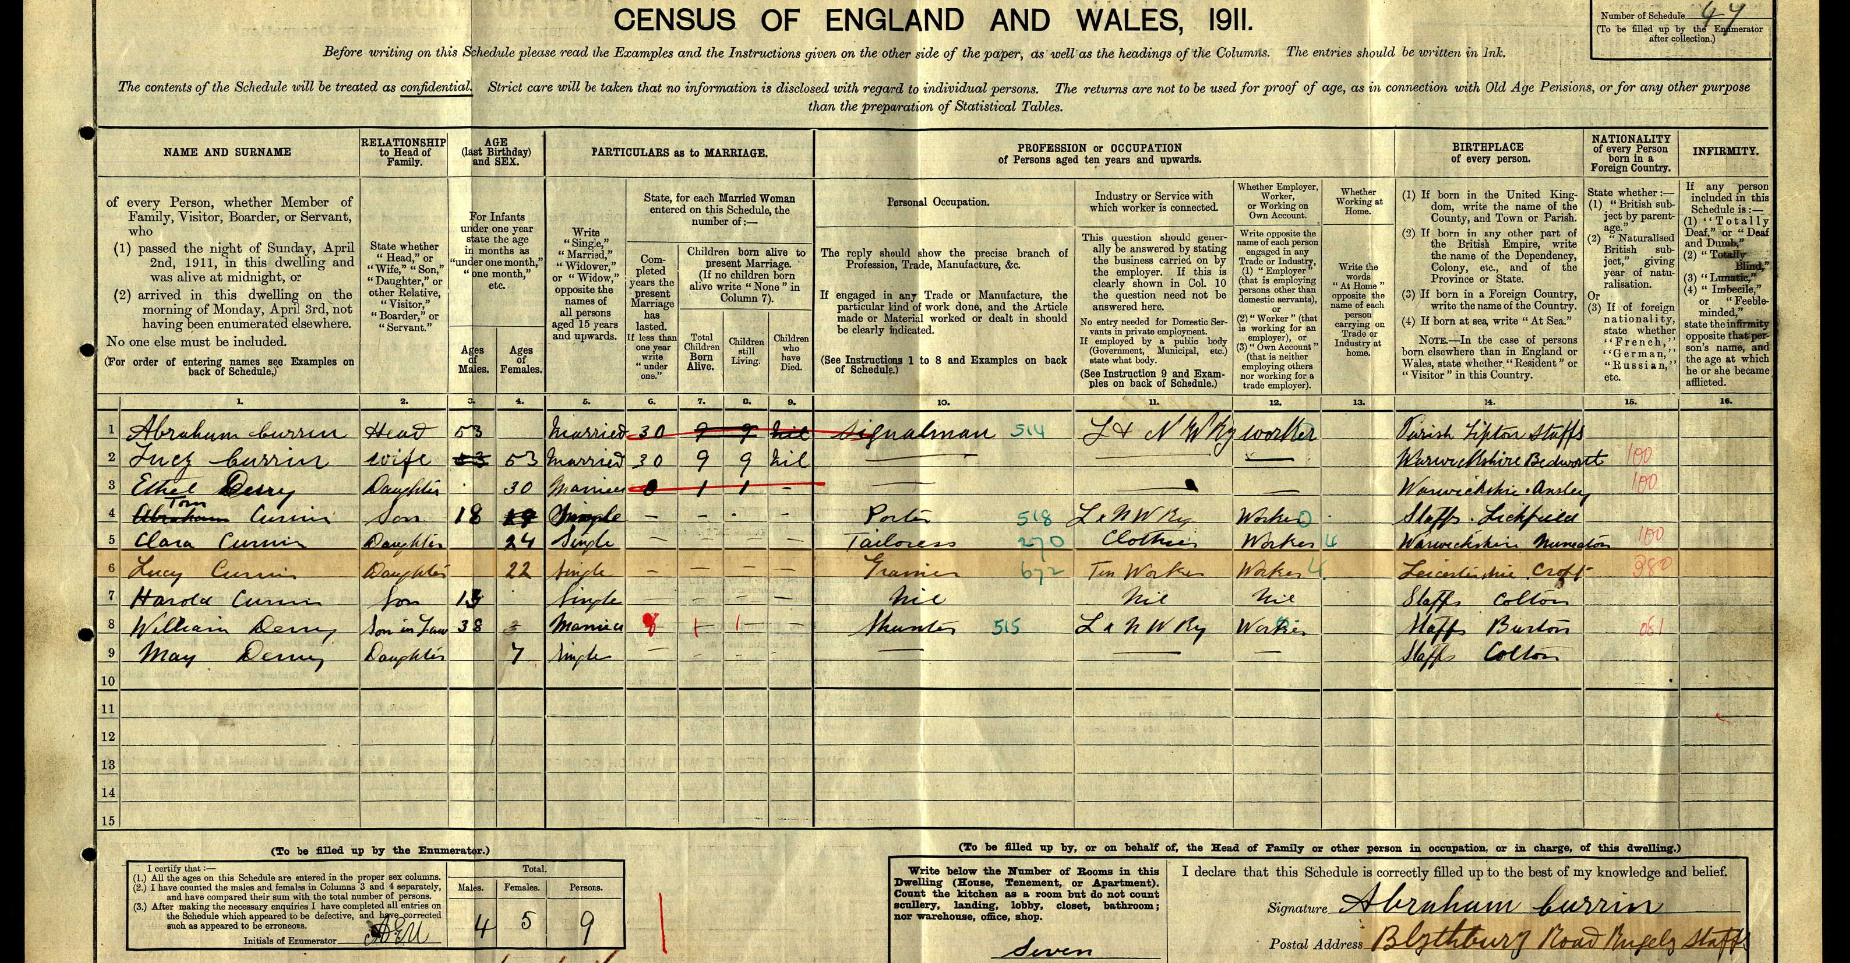 CENSUS OF ENGLAND AND WALES, 1911.
Number of Schedule 47
(To be filled up by the Enumerator
after collection.)
Before writing on this Schedule please read the Examples and the Instructions given on the other side of the paper, as well as the headings of the Columns. The entries should be written in Ink.
The contents of the Schedule will be treated as confidential. Strict care will be taken that no information is disclosed with regard to individual persons. The returns are not to be used for proof of age, as in connection with Old Age Pensions, or for any other purpose
than the preparation of Statistical Tables.
NAME AND SURNAME
of every Person, whether Member of
Family, Visitor, Boarder, or Servant,
who
(1) passed the night of Sunday, April
2nd, 1911, in this dwelling and
was alive at midnight, or
(2) arrived in this dwelling on the
morning of Monday, April 3rd, not
having been enumerated elsewhere.
No one else must be included.
(For order of entering names see Examples on
back of Schedule.)
RELATIONSHIP
to Head of
Family.
State whether
"Head," or
"Wife," "Son,"
"Daughter," or
other Relative,
"Visitor,"
"Boarder," or
"Servant."
AGE
(last Birthday)
and SEX.
For Infants
under one year
state the age
in months as
"under one month,"
"one month,"
etc.
Ages
of
Males.
Ages
of
Females.
PARTICULARS as to MARRIAGE.
Write
"Single,"
"Married,"
"Widower,"
or "Widow,"
opposite the
names of
all persons
aged 15 years
and upwards.
State, for each Married Woman
entered on this Schedule, the
number of:—
Com-
pleted
years the
present
Marriage
has
lasted.
If less than
one year
write
"under
one."
Children born alive to
present Marriage.
(If no children born
alive write "None" in
Column 7).
Total
Children
Born
Alive.
Children
still
Living.
Children
who
have
Died.
PROFESSION or OCCUPATION
of Persons aged ten years and upwards.
Personal Occupation.
The reply should show the precise branch of
Profession, Trade, Manufacture, &c.
If engaged in any Trade or Manufacture, the
particular kind of work done, and the Article
made or Material worked or dealt in should
be clearly indicated.
(See Instructions 1 to 8 and Examples on back
of Schedule.)
Industry or Service with
which worker is connected.
This question should gener-
ally be answered by stating
the business carried on by
the employer. If this is
clearly shown in Col. 10
the question need not be
answered here.
No entry needed for Domestic Ser-
vants in private employment.
If employed by a public body
(Government, Municipal, etc.)
state what body.
(See Instruction 9 and Exam-
ples on back of Schedule.)
Whether Employer,
Worker,
or Working on
Own Account.
Write opposite the
name of each person
engaged in any
Trade or Industry,
(1) "Employer"
(that is employing
persons other than
domestic servants),
or
(2) "Worker" (that
is working for an
employer), or
(3) "Own Account"
(that is neither
employing others
nor working for a
trade employer).
Whether
Working at
Home.
Write the
words
"At Home"
opposite the
name of each
person
carrying on
Trade or
Industry at
home.
BIRTHPLACE
of every person.
(1) If born in the United King-
dom, write the name of the
County, and Town or Parish.
(2) If born in any other part of
the British Empire, write
the name of the Dependency,
Colony, etc., and of the
Province or State.
(3) If born in a Foreign Country,
write the name of the Country.
(4) If born at sea, write "At Sea."
NOTE.—In the case of persons
born elsewhere than in England or
Wales, state whether "Resident" or
"Visitor" in this Country.
NATIONALITY
of every Person
born in a
Foreign Country.
State whether:—
(1) "British sub-
ject by parent-
age."
(2) "Naturalised
British sub-
ject," giving
year of natu-
ralisation.
Or
(3) If of foreign
nationality,
state whether
"French,"
"German,"
"Russian,"
etc.
INFIRMITY.
If any person
included in this
Schedule is:—
(1) "Totally
Deaf," or "Deaf
and Dumb,"
(2) "Totally
Blind,"
(3) "Lunatic,"
(4) "Imbecile,"
or "Feeble-
minded,"
state the infirmity
opposite that per-
son's name, and
the age at which
he or she became
afflicted.
1. 2. 3. 4. 5. 6. 7. 8. 9. 10. 11. 12. 13. 14. 15. 16.
1 Abraham Currin Head 53 Married 30 9 9 nil Signalman 514 L & N W Ry worker Parish Tipton Staffs
2 Lucy Currin wife 53 53 Married 30 9 9 nil — — — Warwickshire Bedworth 100
3 Ethel Derry Daughter 30 Married 1 1 - — — — Warwickshire Ansley 100
4 Abraham Tom Currin Son 18 19 Single — — - — Porter 518 L & N W Ry Worker 0 Staffs Lichfield
5 Clara Currin Daughter 24 Single Tailoress 270 Clothier Worker 4 Warwickshire Nuneaton 100
6 Lucy Currin Daughter 22 Single — — — — 672 Tin Worker Worker 4 Leicestershire Croft 380
7 Harold Currin Son 13 Single — — — — Nil Nil Nil Staffs Colton
8 William Derry Son in Law 38 Married 8 1 1 Shunter 515 L & N W Ry Worker Staffs Burton 061
9 May Derry Daughter 7 Single — — — Staffs Colton
10
11
12
13
14
15
(To be filled up by the Enumerator.)
I certify that:—
(1.) All the ages on this Schedule are entered in the proper sex columns.
(2.) I have counted the males and females in Columns 3 and 4 separately,
and have compared their sum with the total number of persons.
(3.) After making the necessary enquiries I have completed all entries on
the Schedule which appeared to be defective, and have corrected
such as appeared to be erroneous.
Initials of Enumerator
Total.
Males. Females. Persons.
4 5 9
(To be filled up by, or on behalf of, the Head of Family or other person in occupation, or in charge, of this dwelling.)
Write below the Number of Rooms in this
Dwelling (House, Tenement, or Apartment).
Count the kitchen as a room but do not count
scullery, landing, lobby, closet, bathroom;
nor warehouse, office, shop.
Seven
I declare that this Schedule is correctly filled up to the best of my knowledge and belief.
Signature Abraham Currin
Postal Address Blythbury Road Rugely Staffs